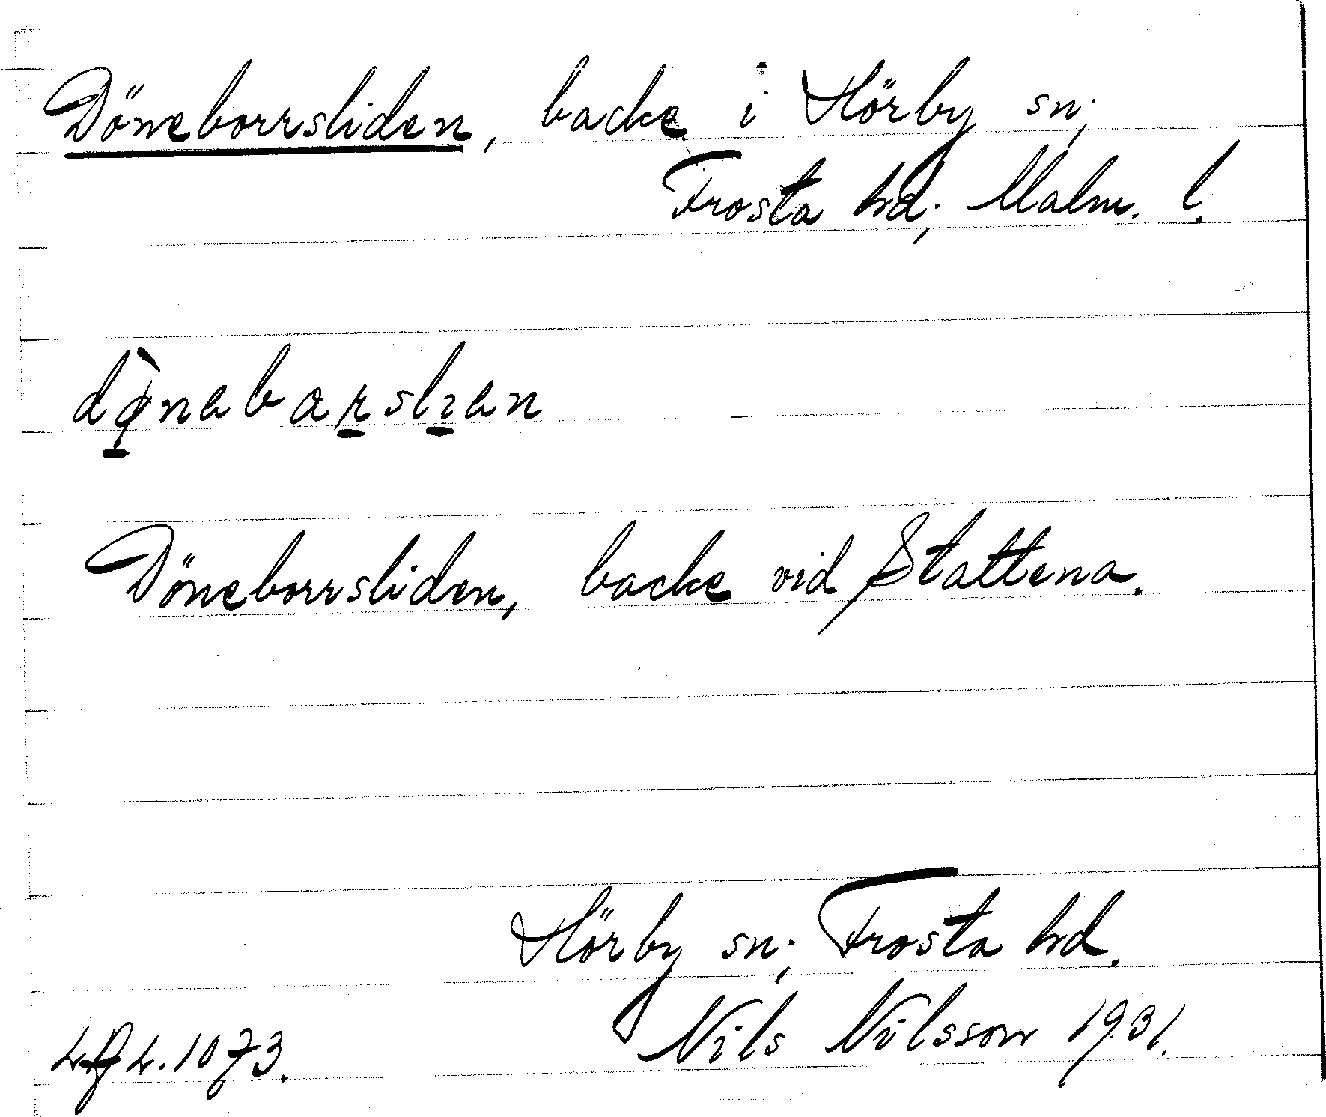 Döneborrsliden, backe i Hörby sn;
Frosta hd; Malm. l.
Döneborrsliden, backe vid Stattena.
Hörby sn; Frosta hd.
Nils Nilsson 1931.
1073.